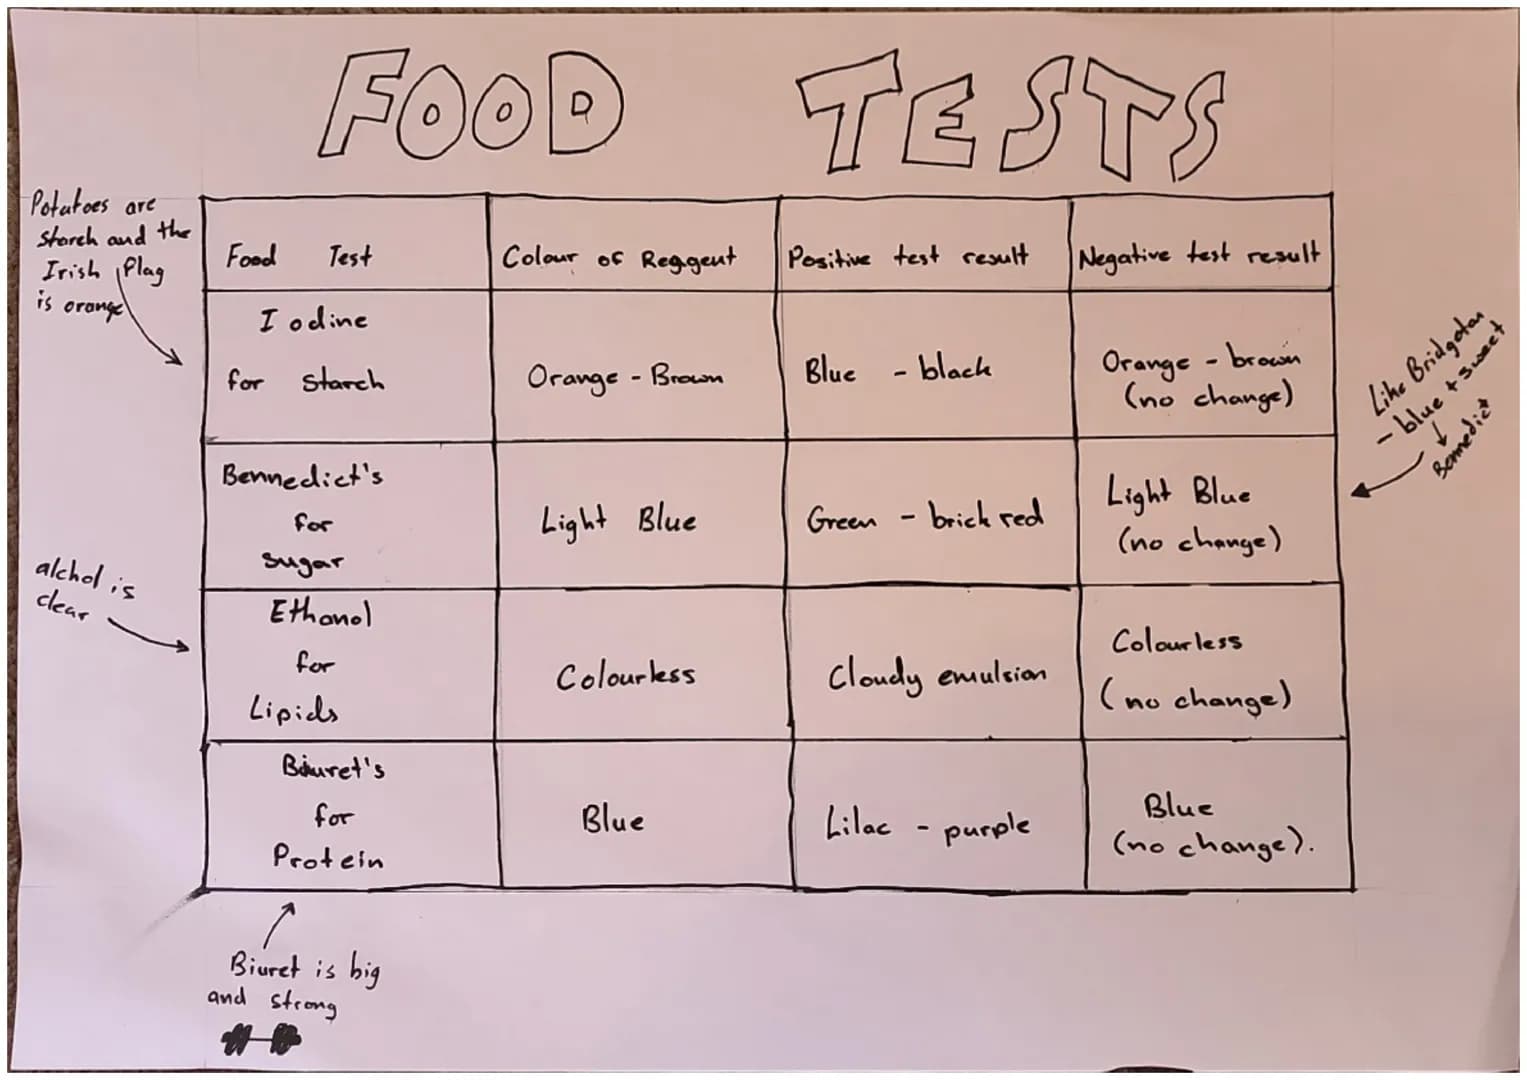 FOOD TESTS
Potatoes are
starch and the
Irish flag
is orange
Food Test
Colour of Reagent
Positive test result
Negative test result
Iodine
for starch
Orange - Brown
Blue - black
Orange - brown
(no change)
Like Bridgeton
- blue + sweet
↓
Bennedict
Bennedict's
for
sugar
Light Blue
Green - brick red
Light Blue
(no change)
alchol is
clear
Ethanol
for
Lipids
Colourless
Cloudy emulsion
Colourless
(no change)
Biuret's
for
Protein
Blue
Lilac - purple
Blue
(no change).
Biuret is big
and strong